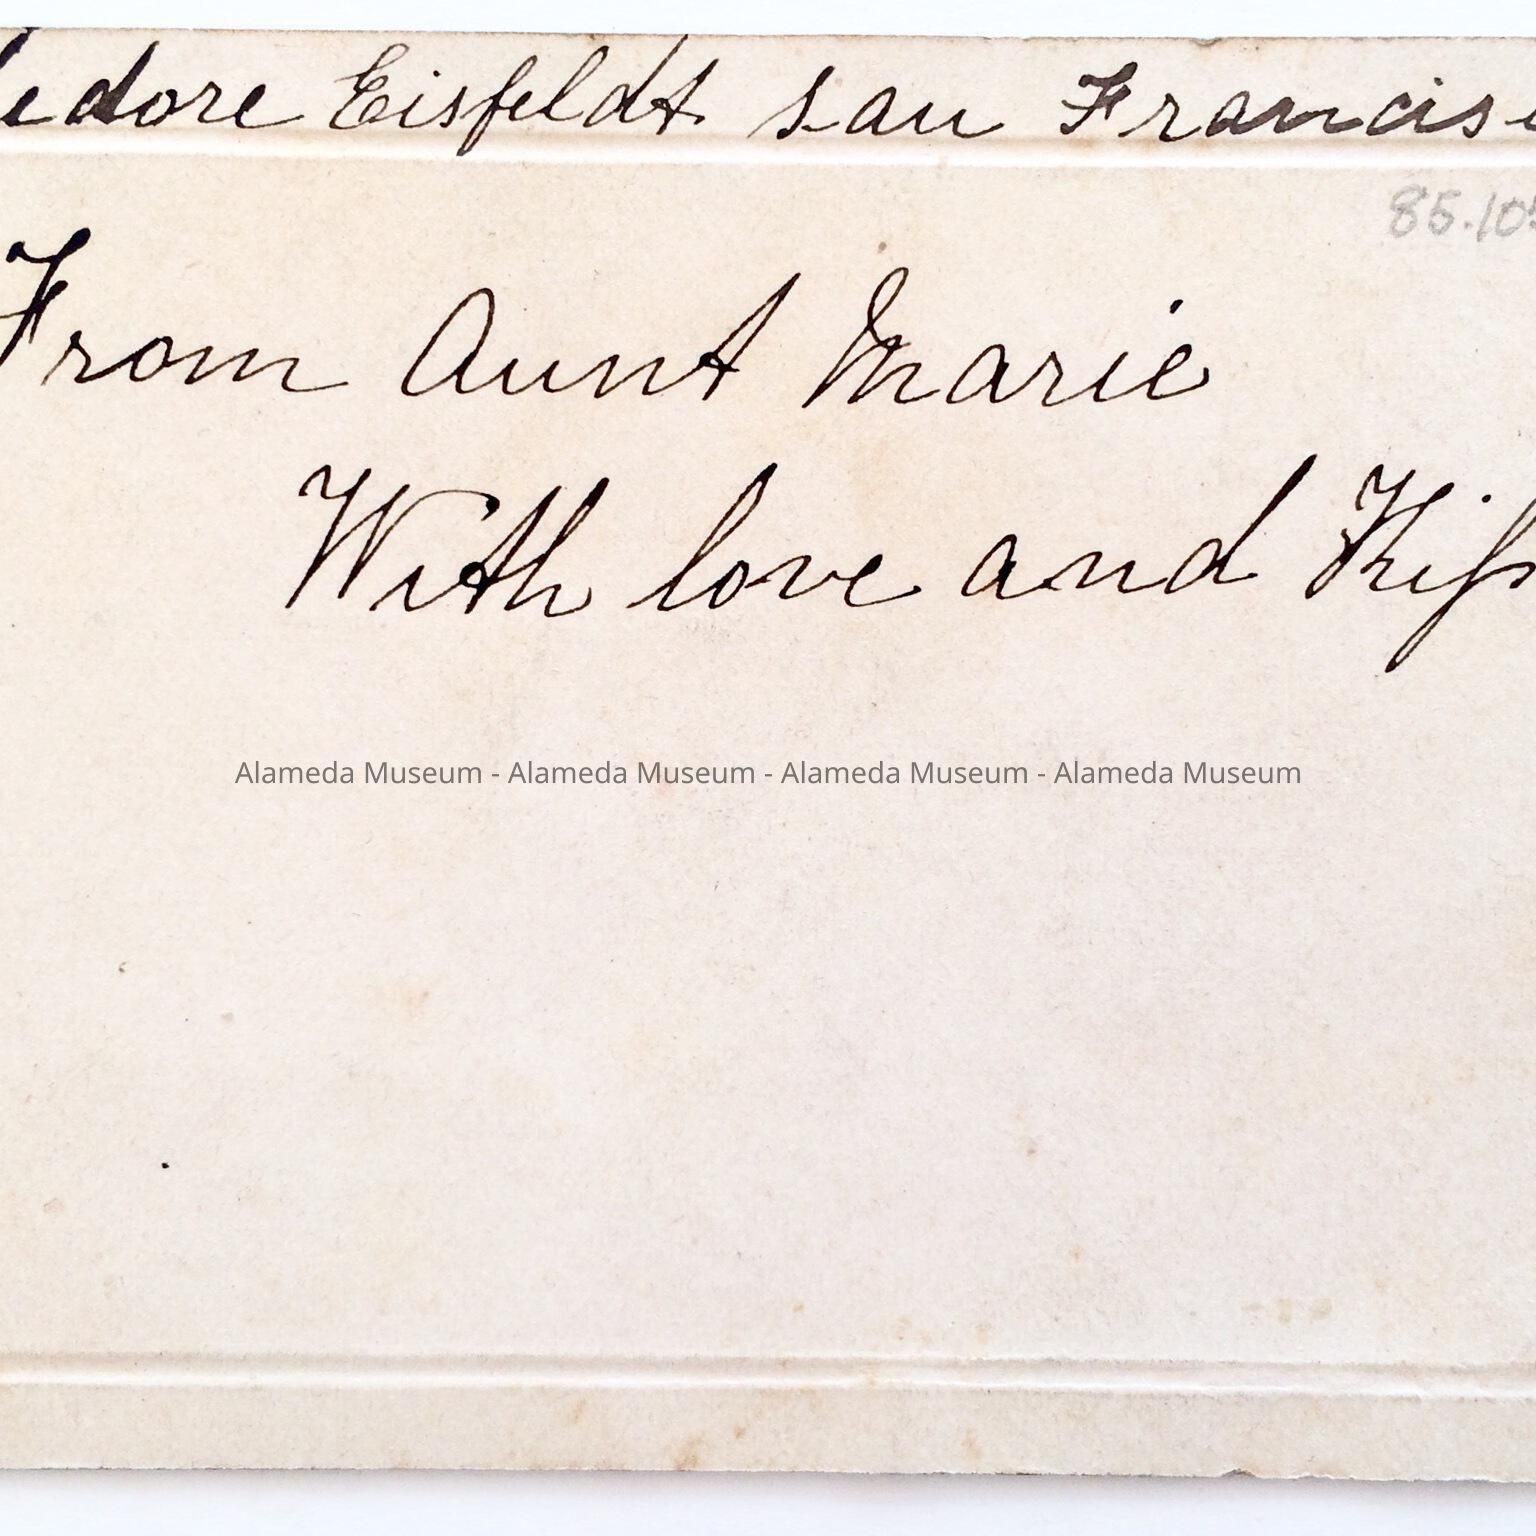 edore Eisfeldt san Francis
85.105
From Aunt Marie
With love and Kiss
Alameda Museum - Alameda Museum - Alameda Museum - Alameda Museum